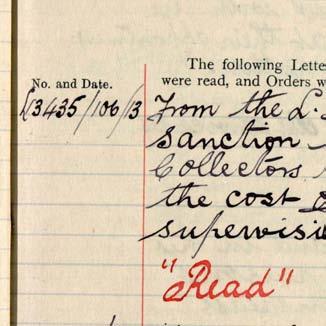 The following Lette
were read, and Orders w
No. and Date.
13435/106/13
From the L.
sanction
Collectors
the cost
supervisi
"Read"